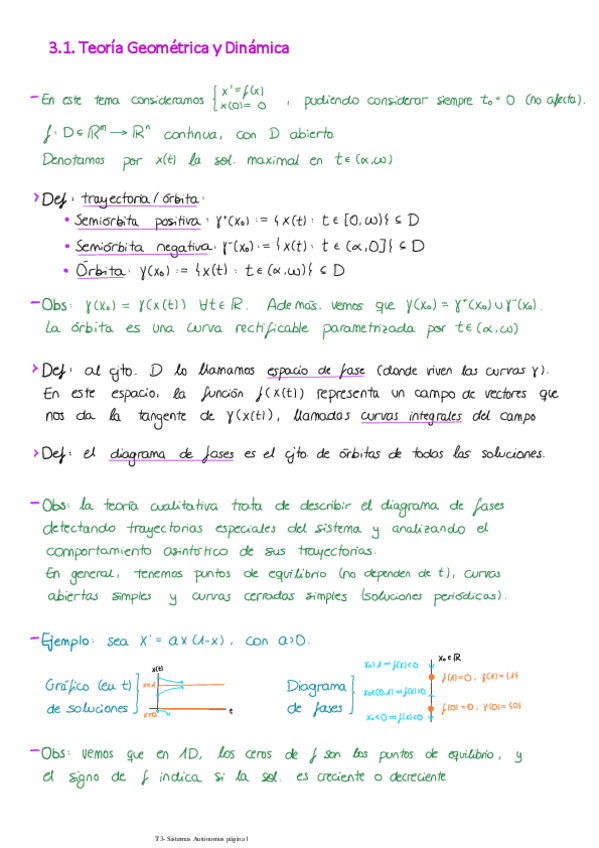 3.1. Teoría Geométrica y Dinámica
- En este tema consideramos { x' = f(x)
x(0) = 0 , pudiendo considerar siempre t₀ = 0 (no afecta).
f: D ⊆ ℝᵐ → ℝⁿ continua, con D abierto.
Denotamos por x(t) la sol. maximal en t ∈ (α,ω)
> Def: trayectoria / órbita:
• Semiórbita positiva: γ⁺(x₀) := {x(t) : t ∈ [0,ω)} ⊆ D
• Semiórbita negativa: γ⁻(x₀) := {x(t) : t ∈ (α,0]} ⊆ D
• Órbita: γ(x₀) := {x(t) : t ∈ (α,ω)} ⊆ D
- Obs: γ(x₀) = γ(x(t)) ∀t ∈ ℝ. Además, vemos que γ(x₀) = γ⁺(x₀) ∪ γ⁻(x₀).
La órbita es una curva rectificable parametrizada por t ∈ (α,ω)
> Def: al cjto. D lo llamamos espacio de fase (donde viven las curvas γ).
En este espacio, la función f(x(t)) representa un campo de vectores que
nos da la tangente de γ(x(t)), llamadas curvas integrales del campo
> Def: el diagrama de fases es el cjto. de órbitas de todas las soluciones.
- Obs: la teoría cualitativa trata de describir el diagrama de fases
detectando trayectorias especiales del sistema y analizando el
comportamiento asintótico de sus trayectorias.
En general, tenemos puntos de equilibrio (no dependen de t), curvas
abiertas simples y curvas cerradas simples (soluciones periódicas).
- Ejemplo: sea x' = ax(1-x), con a>0.
Gráfico (en t)
de soluciones
x(t)
x=1
x=0
t
Diagrama
de fases
x₀>1 ⇒ f(x)<0
x₀∈(0,1) ⇒ f(x)>0
x₀<0 ⇒ f(x)<0
x₀ ∈ ℝ
f(1)=0, γ(1)={1}
f(0)=0, γ(0)={0}
- Obs: vemos que en 1D, los ceros de f son los puntos de equilibrio, y
el signo de f indica si la sol. es creciente o decreciente
T3- Sistemas Autónomos página 1